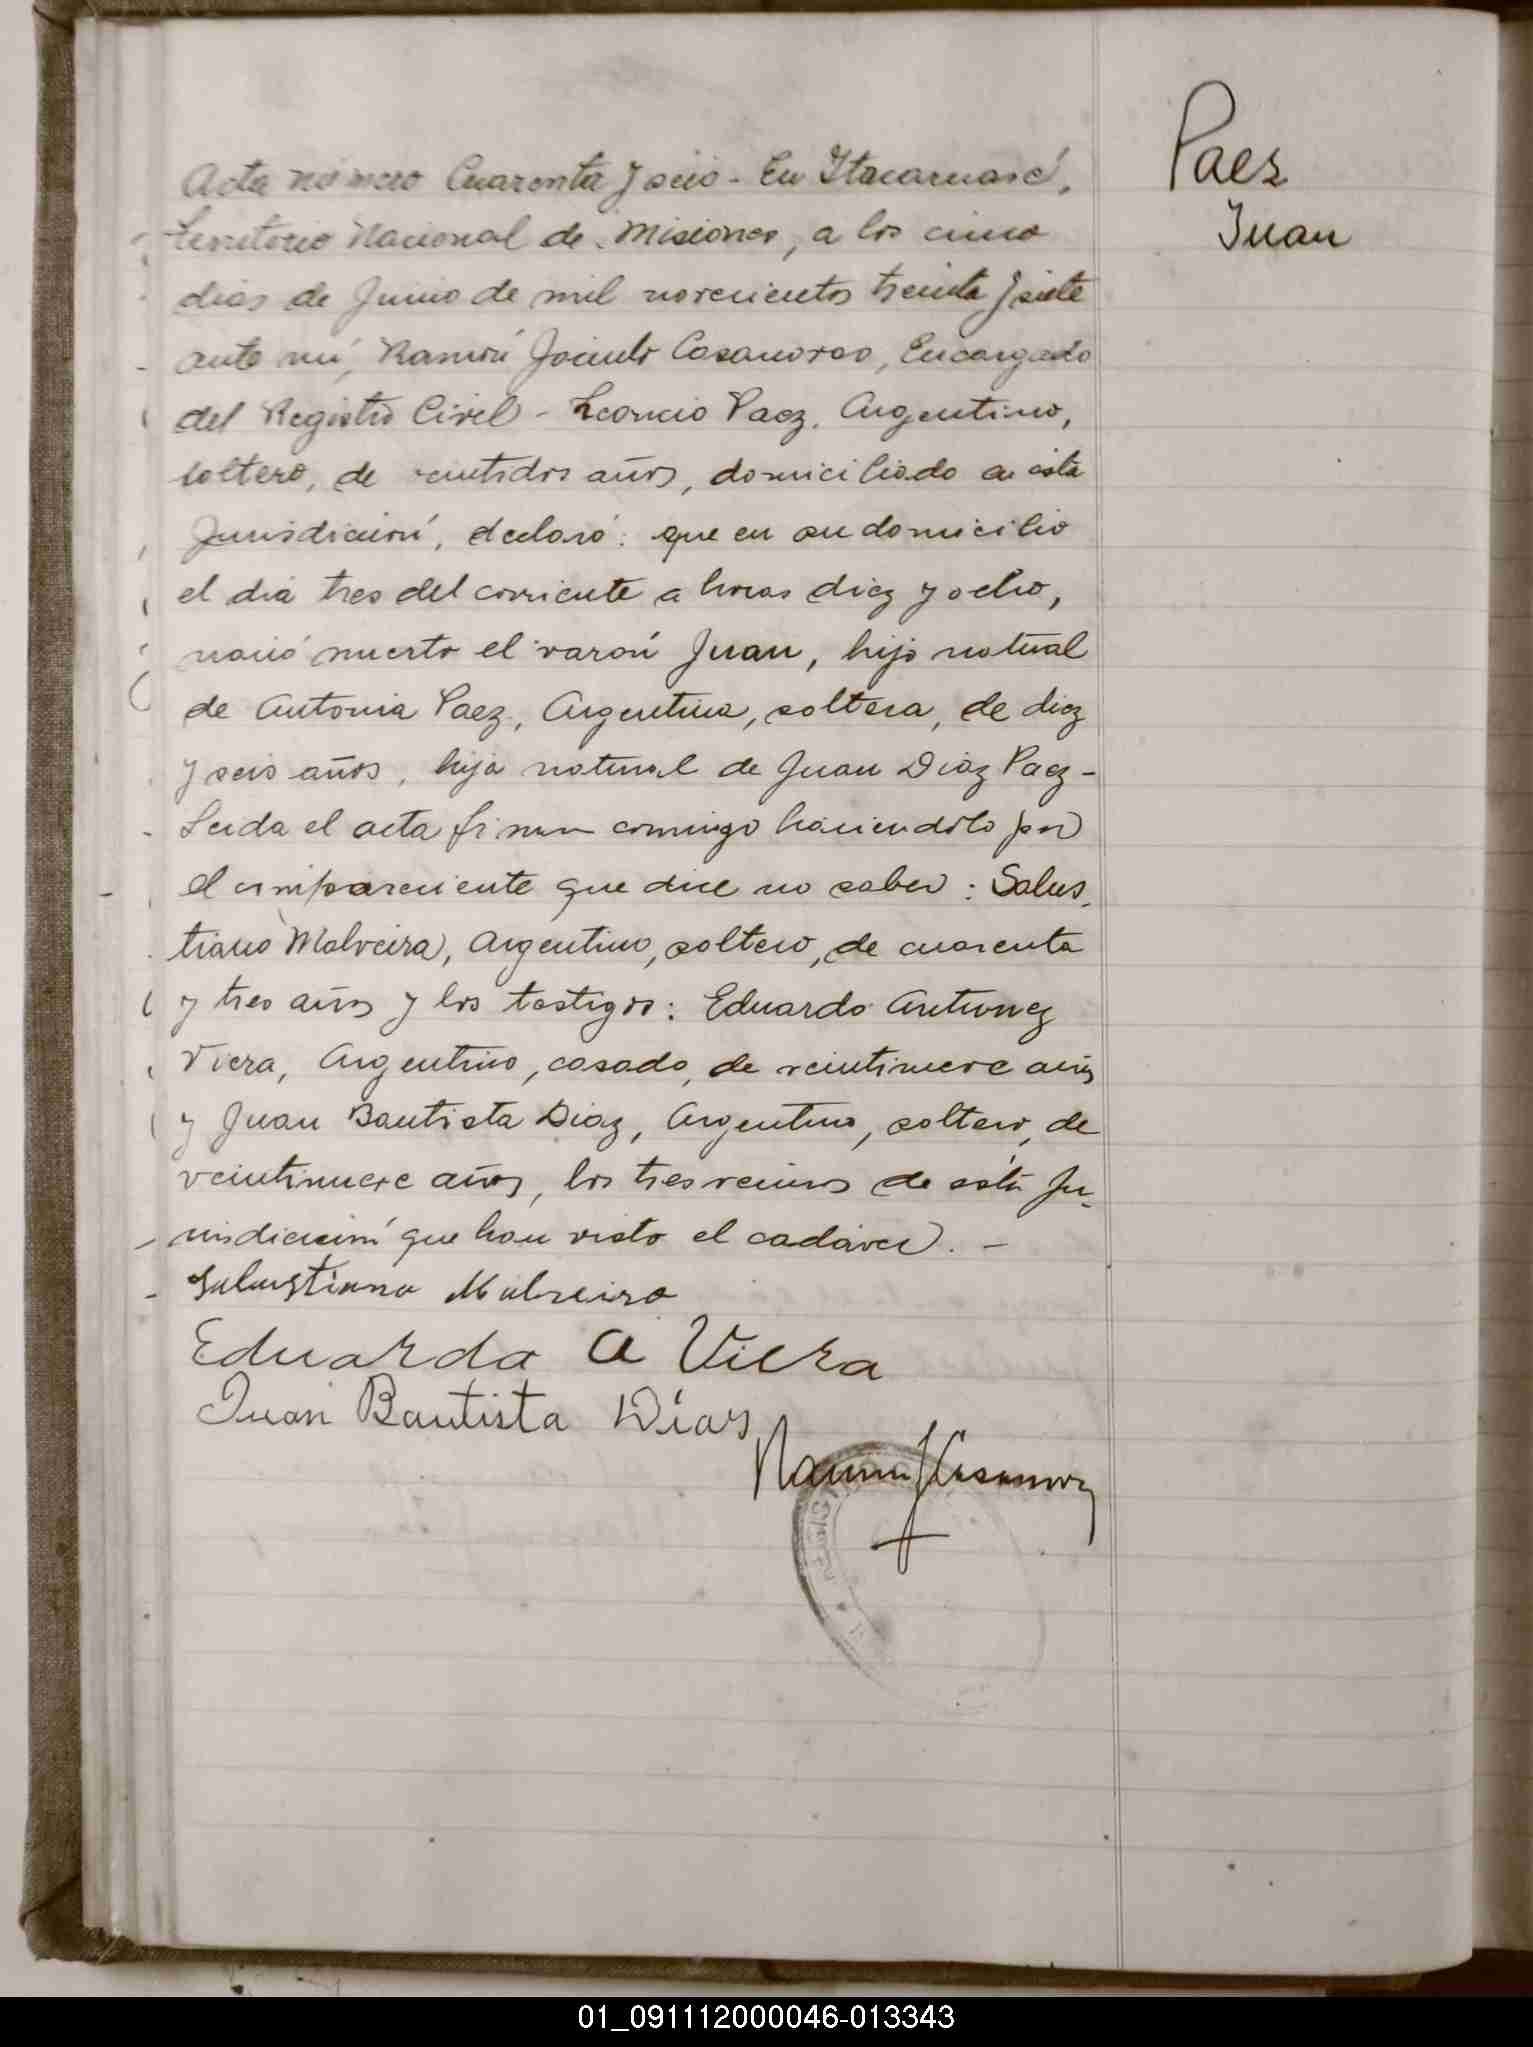 Paez
Juan
Acta número Cuarenta y seis - En Itacaruaré,
territorio Nacional de Misiones, a los cinco
dias de Junio de mil novecientos treinta y siete
ante mí, Ramón Jacinto Casanovas, Encargado
del Registro Civil - Leoncio Paez, Argentino,
soltero, de veintidos años, domiciliado en ésta
Jurisdicción, declaró: que en su domicilio
el día tres del corriente a horas diez y ocho,
nació muerto el varón Juan, hijo natural
de Antonia Paez, Argentina, soltera, de diez
y seis años, hija natural de Juan Diaz Paez -
Leida el acta firman conmigo haciendolo por
el compareciente que dice no saber: Salus,
tiano Malveira, Argentino, soltero, de cuarenta
y tres años y los testigos: Eduardo Antunez
Viera, Argentino, casado, de veintinueve años
y Juan Bautista Diaz, Argentino, soltero, de
veintinueve años, los tres vecinos de ésta Ju-
risdicción que han visto el cadáver. -
Salustiano Malveira
Eduardo A Viera
Juan Bautista Días
Ramón J Casanovas
01_091112000046-013343